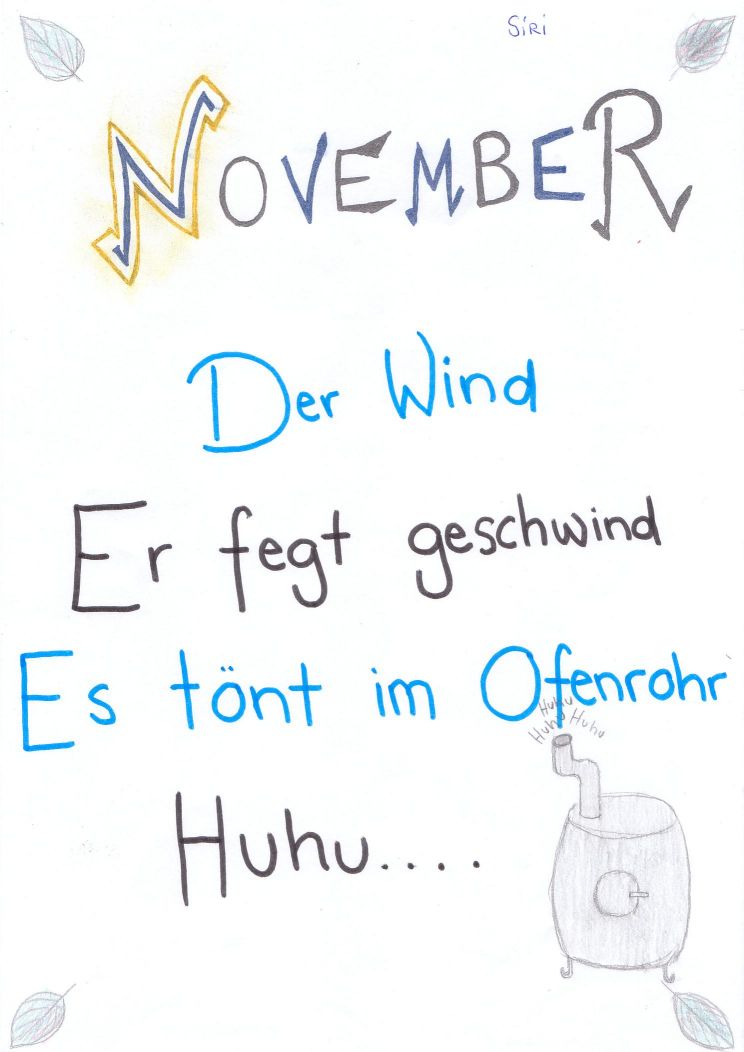 Siri
NOVEMBER
Der Wind
Er fegt geschwind
Es tönt im Ofenrohr
Huhu
Huhu Huhu
Huhu....